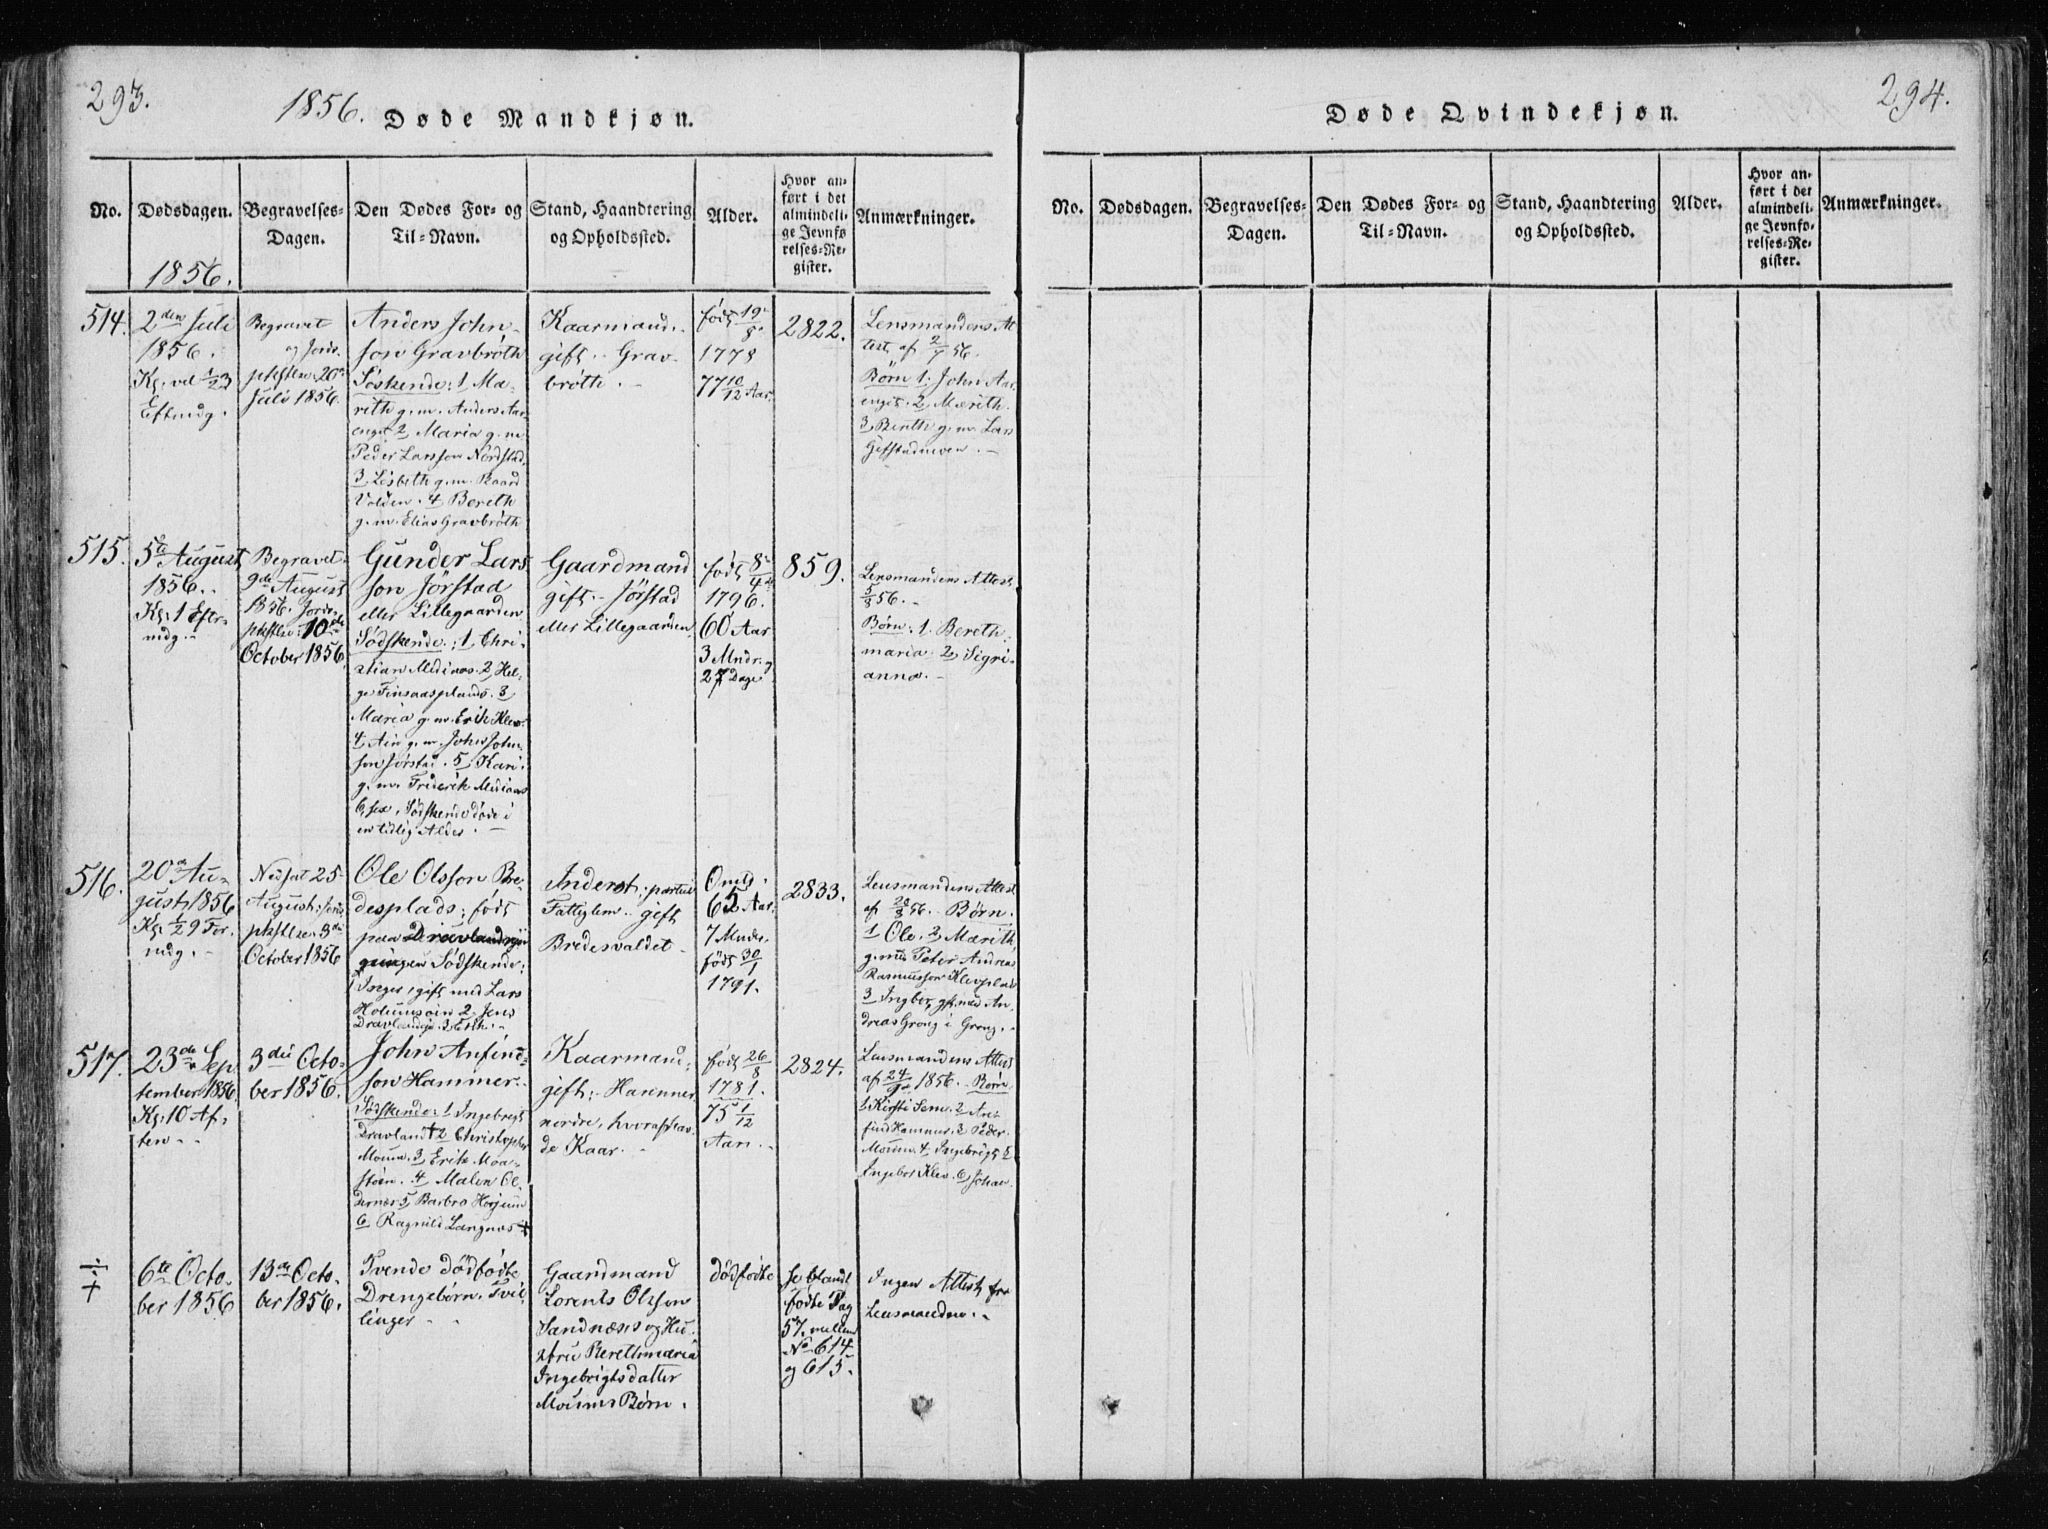 293.
1856. Døde Mandkjøn.
No.
Dødsdagen.
Begravelses-
Dagen.
Den Dødes For- og
Til-Navn.
Stand, Haandtering
og Opholdssted.
Alder.
Hvor an-
ført i det
almindeli-
ge Jevnfø-
relses-Re-
gister.
Anmærkninger.
1856.
514.
2den Juli
1856.
Kl: vel 1/2 3
Eftmdg.
Begravet
og Jords-
pkstlse 20de
Juli 1856.
Anders John-
son Gravbrøth
Søskende: 1 Ma-
rith g. m. Anders Aar-
enget 2 Maria g. m
Peder Larsson Nordstad.
3 Lisbeth g. m. Baard
Volden. 4 Bereth
g. m. Elias Gravbrøth
Kaarmand.
gift. Grav-
brøth.
født 19/8
1778
77 10/12 Aar.
2822.
Lensmandens At-
test af 2/7 56.
Børn 1. John Aar-
enget. 2 Mærith.
3 Berith g. m. Lars
515.
5te August
1856.
Kl: 1 Efter-
midg.
Begravet
9de August
1856. Jords-
pkstlse 10de
October 1856.
Gunder Lars-
son Jørstad
eller Lillegaarden
Sødskende: 1 Chri-
stian Mediaas. 2 Hel-
ge Finsaasplads. 3
Maria g. m. Erik Klev.
4 Ain g. m. John John-
son Jørstad. 5 Kari
g. m. Friderik Mediaas
6 sex Sødskende døde i
en tidlig Alder.
Gaardmand
gift. Jørstad
eller Lillegaarden.
født 8/4
1796.
60 Aar
3 Mndr. og
27 Dage
859.
Lensmandens Attest
5/8 56.
Børn: 1 Bereth-
maria 2 Sigri-
anna.
516.
20de Au-
gust 1856
Kl: 1/2 9 For-
mdg.
Nedsat 25
August: Jords-
pkstlse 3die
October 1856
Ole Olsson Bre-
desplads; født
paa
Sødskende:
Inger, gift med Lars
2 Jens
Inderst; partiel
Fattiglem. gift
Bredesvaldet
Omtr.
65 Aar,
7 Mnder.
født 30/1
1791.
2833.
Lensmandens Attest
af 20/8 56. Børn.
1 Ole. 2 Mærith
g. m. Peter Andreas
Rasmusson Klevplads
3 Ingbor, gft. med An-
dreas Grong i Grong.
517.
23de Sep-
tember 1856
Kl: 10 Af-
ten
3die Octo-
ber 1856.
John Anfind-
son Hammer.
Sødskende 1 Ingebrigt
Dravland 2 Christopher
Moum. 3 Erik Moa-
støen. 4 Malen Ol-
dernæs 5 Barbro Horjum
6 Ragnild Langnæs
Kaarmand;
gift; Hammer
nordre, hvoraf hav-
de Kaar.
født 26/8
1781.
75 1/12
Aar.
2824.
Lensmandens Attest
af 24/9 1856. Børn
1 Kirsti Sem. 2 An-
find Hammer. 3 Peder
Moum. 4 Ingebrigt 5
Ingebor Klev. 6 Johan.
÷
+
6te Octo-
ber 1856
13de Octo-
ber 1856.
Tvende dødfødte
Drengebørn, Tvil-
linger
Gaardmand
Lorents Olsson
Sandnæs's og Hu-
stru Berethmaria
Ingebrigtsdatter
Moums Børn.
dødfødte
se blandt
fødte Pag
57. mellem
No 614
og 615.
Ingen Attest fra
Lensmanden.
294.
Døde Qvindekjøn.
No.
Dødsdagen.
Begravelses-
Dagen.
Den Dødes For- og
Til-Navn.
Stand, Haandtering
og Opholdssted.
Alder.
Hvor an-
ført i det
almindeli-
ge Jevnfø-
relses-Re-
gister.
Anmærkninger.